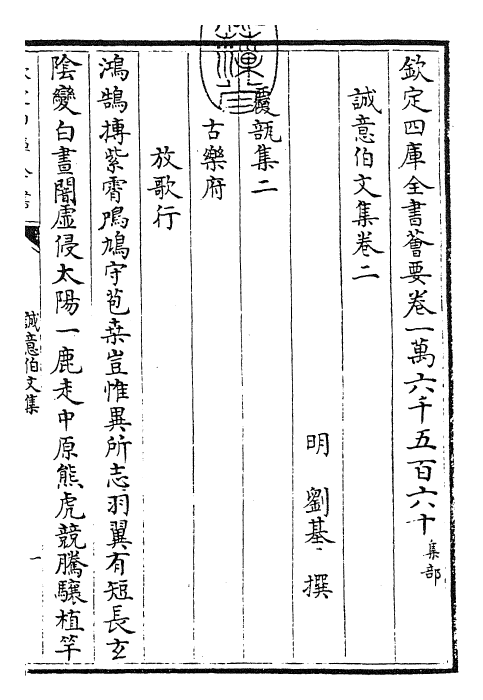 欽定四庫全書薈要卷一萬六千五百六十集部
誠意伯文集卷二
明 劉基 撰
覆瓿集二
古樂府
放歌行
鴻鵠摶紫霄鳲鳩守苞桒豈惟異所志羽翼有短長玄
陰變白晝闇虚侵太陽一鹿走中原熊虎競騰驤植竿
誠意伯文集
一